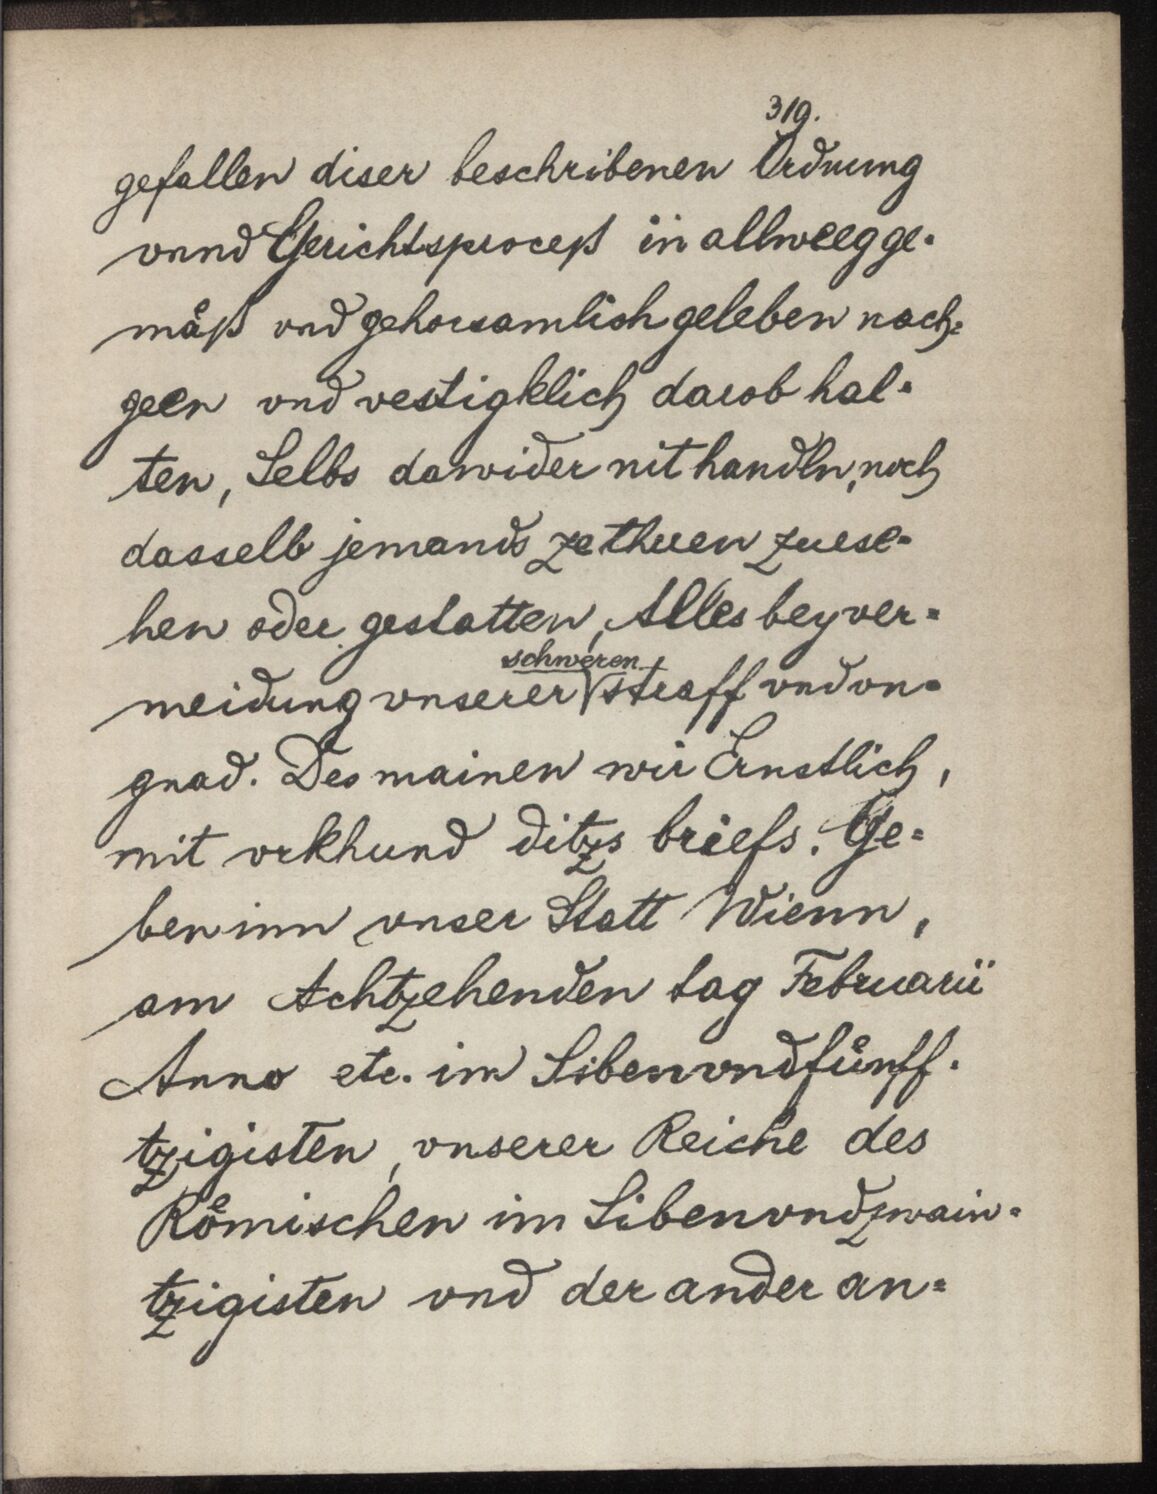 319.
gefallen diser beschribenen Ordnung
vnnd Gerichtsproceß in allweeg ge-
mäß vnd gehorsamlich geleben nach-
geen vnd vestigklich darob hal-
ten, Selbs dawider nit handln, noch
dasselb jemands ze thuen zuese-
hen oder gestatten, Alles bey ver-
schweren
meidung vnserer straff vnd vn-
gnad. Des mainen wir Ernstlich,
mit vrkhund ditzs briefs. Ge-
ben inn vnser Statt Wienn,
am Achtzehenden tag Februarii
Anno etc. im Sibenvndfünff-
tzigisten, vnserer Reiche des
Römischen im Sibenvndzwain-
tzigisten vnd der ander an-